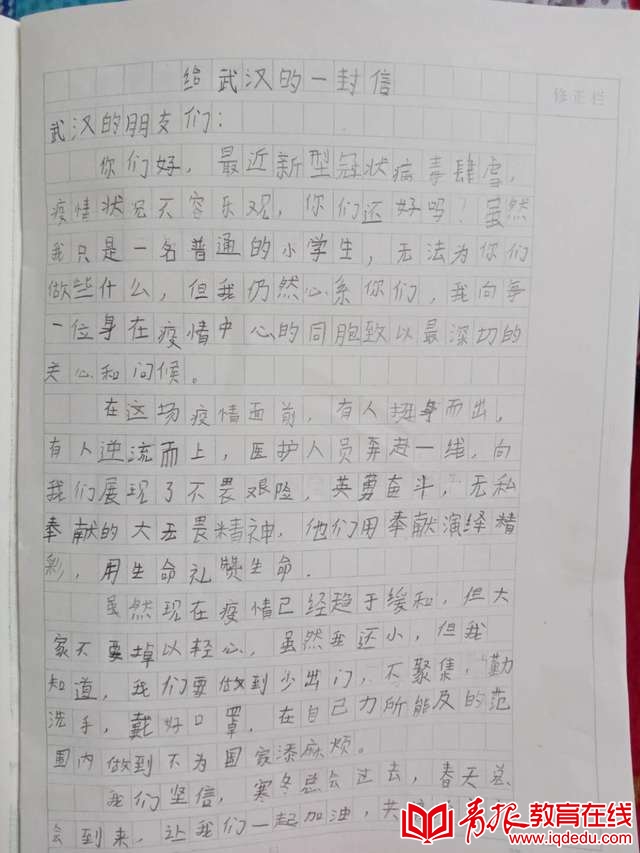 给武汉的一封信
修正栏
武汉的朋友们：
你们好，最近新型冠状病毒肆虐，
疫情状况不容乐观，你们还好吗？虽然
我只是一名普通的小学生，无法为你们
做些什么，但我仍然心系你们，我向每
一位身在疫情中心的同胞致以最深切的
关心和问候。
在这场疫情面前，有人挺身而出，
有人逆流而上，医护人员奔赴一线，向
我们展现了不畏艰险，英勇奋斗，无私
奉献的大无畏精神，他们用奉献演绎精
彩，用生命礼赞生命．
虽然现在疫情已经趋于缓和，但大
家不要掉以轻心，虽然我还小，但我
知道，我们要做到少出门，不聚集，勤
洗手，戴好口罩，在自己力所能及的范
围内做到不为国家添麻烦。
我们坚信，寒冬总会过去，春天总
会到来，让我们一起加油，共
青报教育在线
www.iqdedu.com